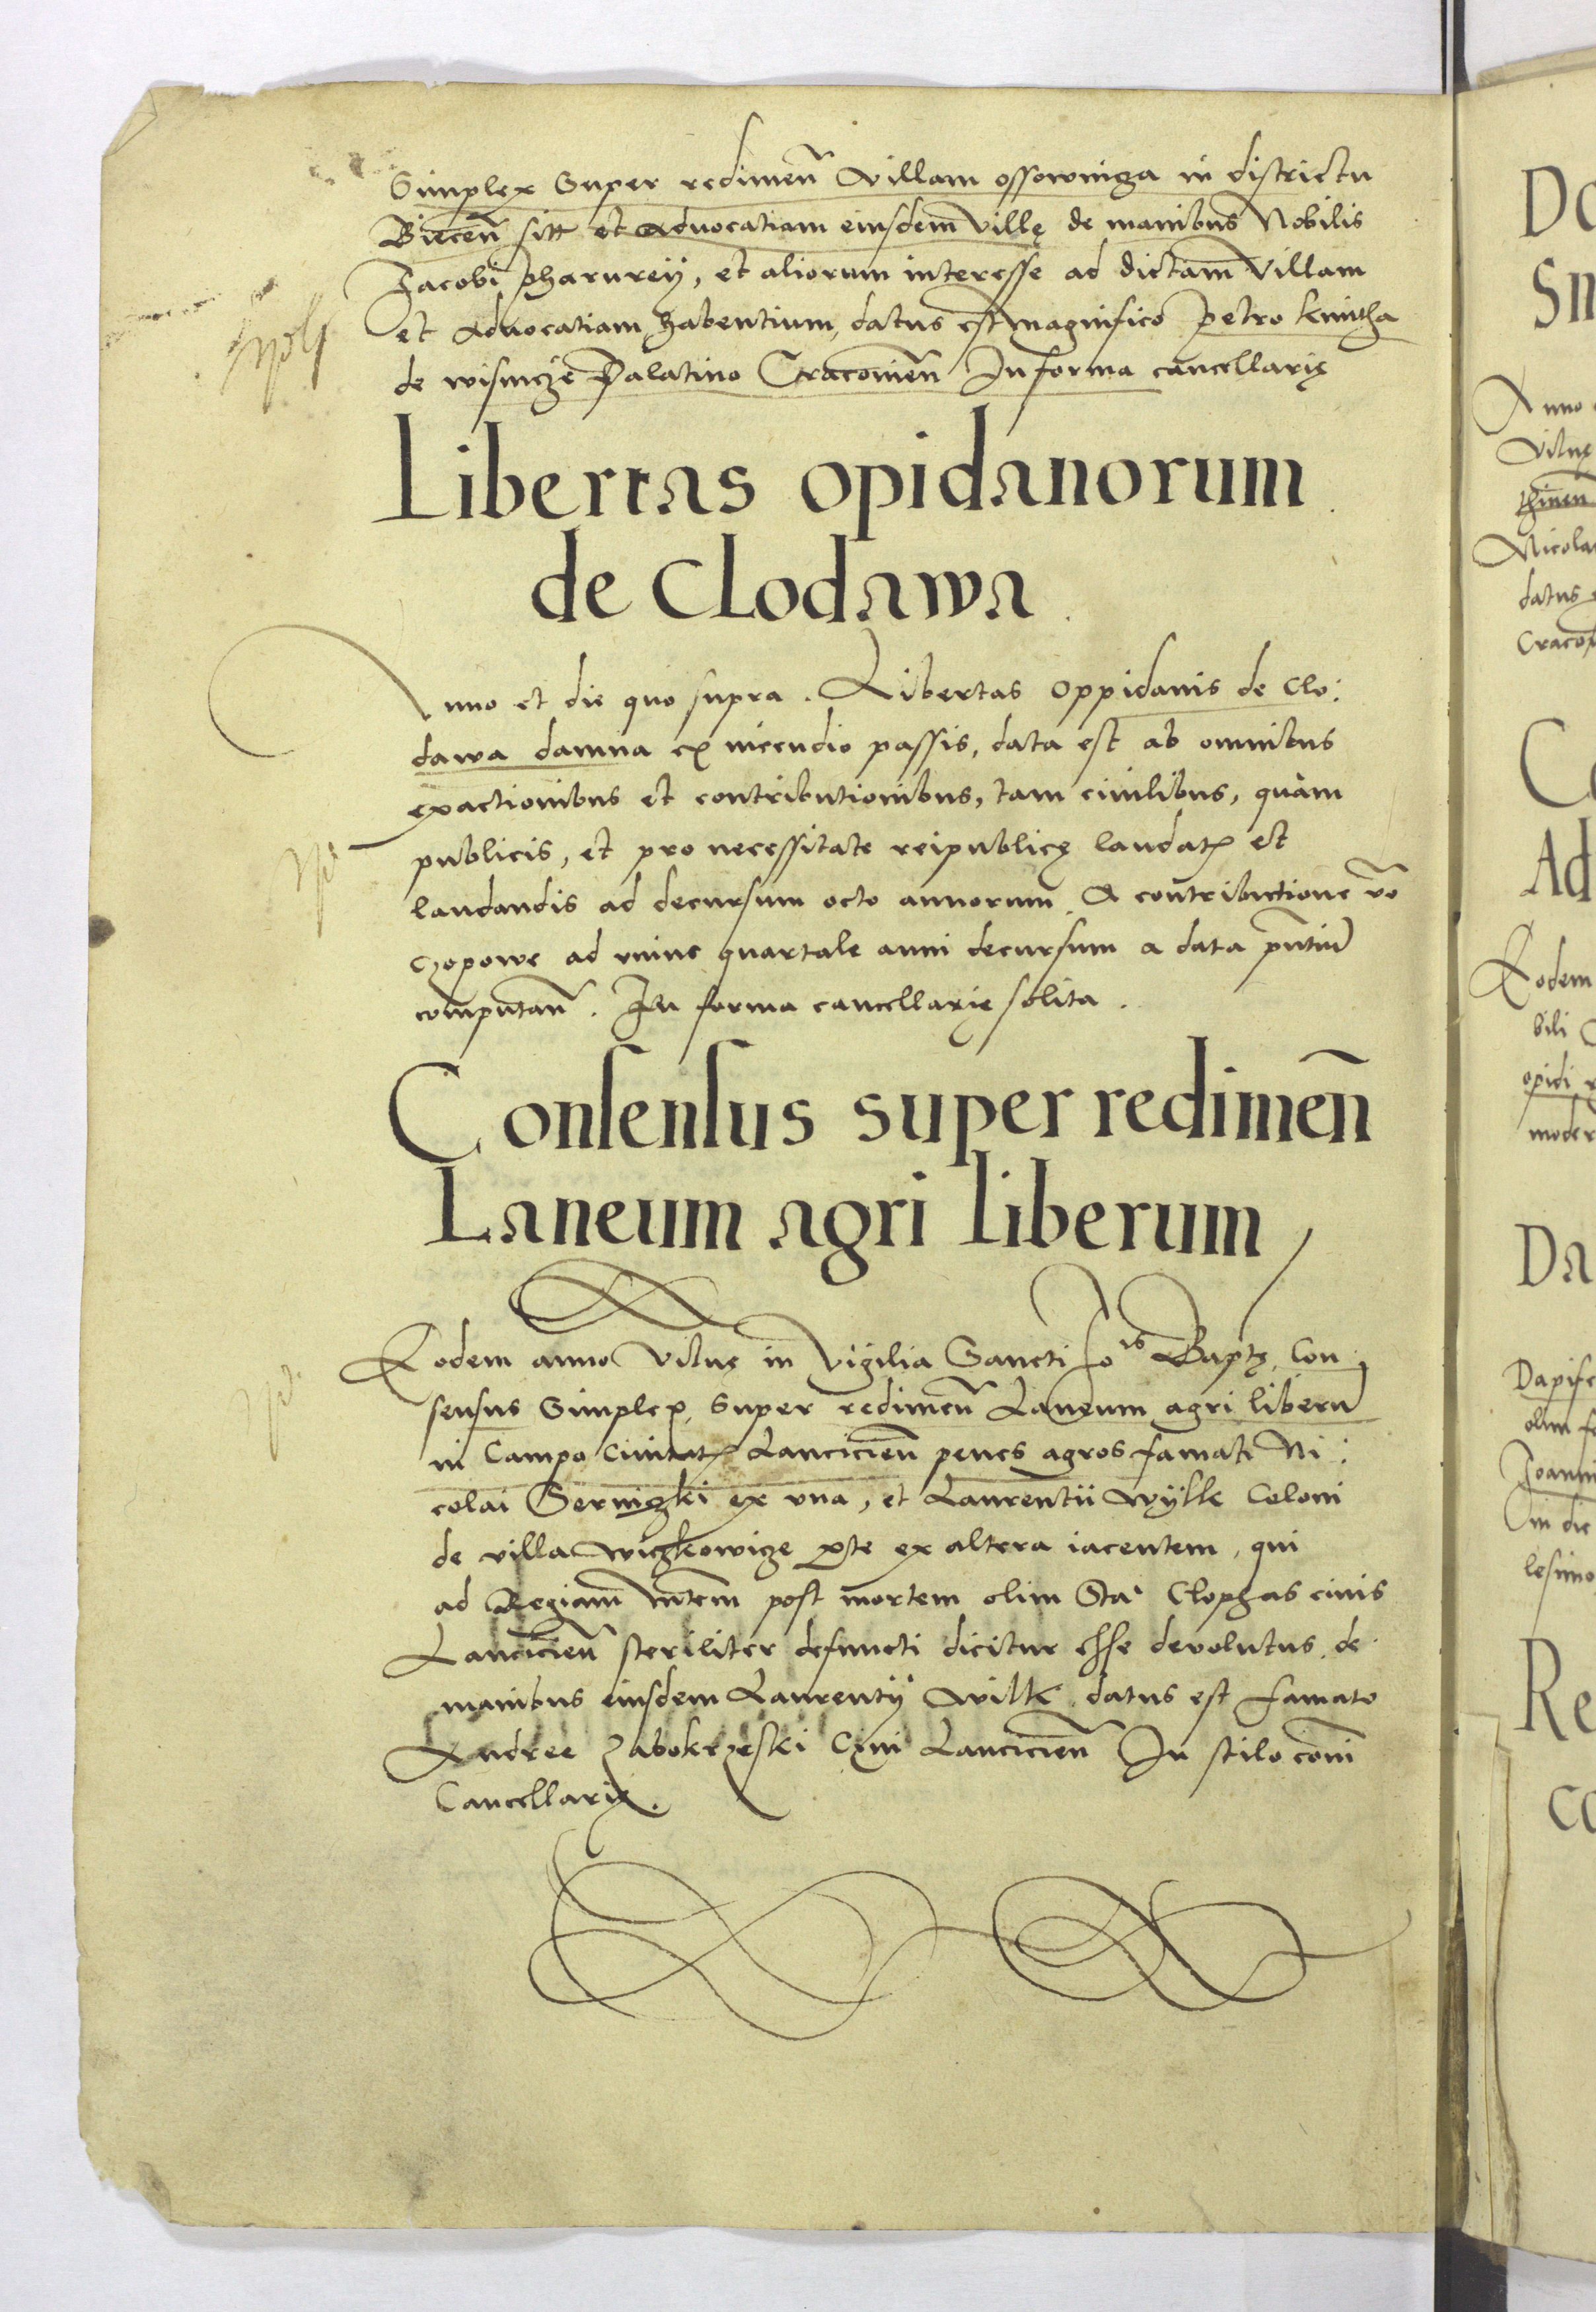 Simplex Super redimeñ Villam ossownicza in districtu
Biecceñ sitt et Advocatiam eiusdem Villę de manibus Nobilis
Jacobi Pharurey, et aliorum interesse ad dictam Villam
et Advocatiam habentium, datus est magnifico Petro kmitha
de wisnicze Palatino Cracovieñ In forma cancellarię
Libertas opidanorum
de Clodawa
Anno et die quo supra. Libertas Oppidanis de Clo:
dawa damna ex incendio passis, data est ab omnibus
exactionibus et contributionibus, tam civilibus, quàm
publicis, et pro necessitate reipublicę laudat et
laudandis ad decursum octo annorum. A contributione vo
czopowe ad unius quartale anni decursum a data pñtiu
computañ. In forma cancellarię solita.
Consensus super redimeñ
Laneum agri liberum
Eodem anno Vilnę in Vigilia Sancti Jo is Baptę, Con
sensus Simplex, Super redimeñ Laneum agri liberu
in Campo Civitat Lancicieñ penes agros famati Ni:
colai Gerniczki ex una, et Laurentii Wylk Coloni
de villa wiczkowicze pte ex altera iacentem, qui
ad Regiam Mtem post mortem olim Sta. Clophas civis
Lancicieñ steriliter defuncti dicitur esse devolutus, de
manibus eiusdem Laurentij Wilk datus est famato
Andree Zabokrzeski Civi Lancicieñ In stilo comi
Cancellarię.
Anno
Vilnę
Nicola
datus
Eodem
bili
opidi
moder
Dapife
olim
Joanni
in die
lesimo